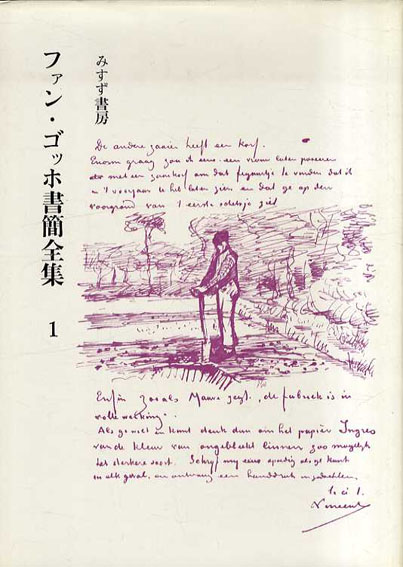 みすず書房
ファン・ゴッホ書簡全集
1
De andere zaaier heeft een korf.
Enorm graag zou ik eens een vrouw laten poseeren
met een zaaikorf om dat figuurtje te vinden dat ik
u 't voorjaar heb laten zien en dat ge op den
voorgrond van 't eerste schetsje ziet
Enfin zooals Mauve zegt, de fabriek is in
volle werking.
Als ge wilt en kunt denk dan om het papier Ingres
van de kleur van ongebleekt linnen, zoo mogelijk
het sterkere soort. Schrijf mij eens spoedig als ge kunt
in elk geval, en ontvang een handdruk in gedachten.
Vincent